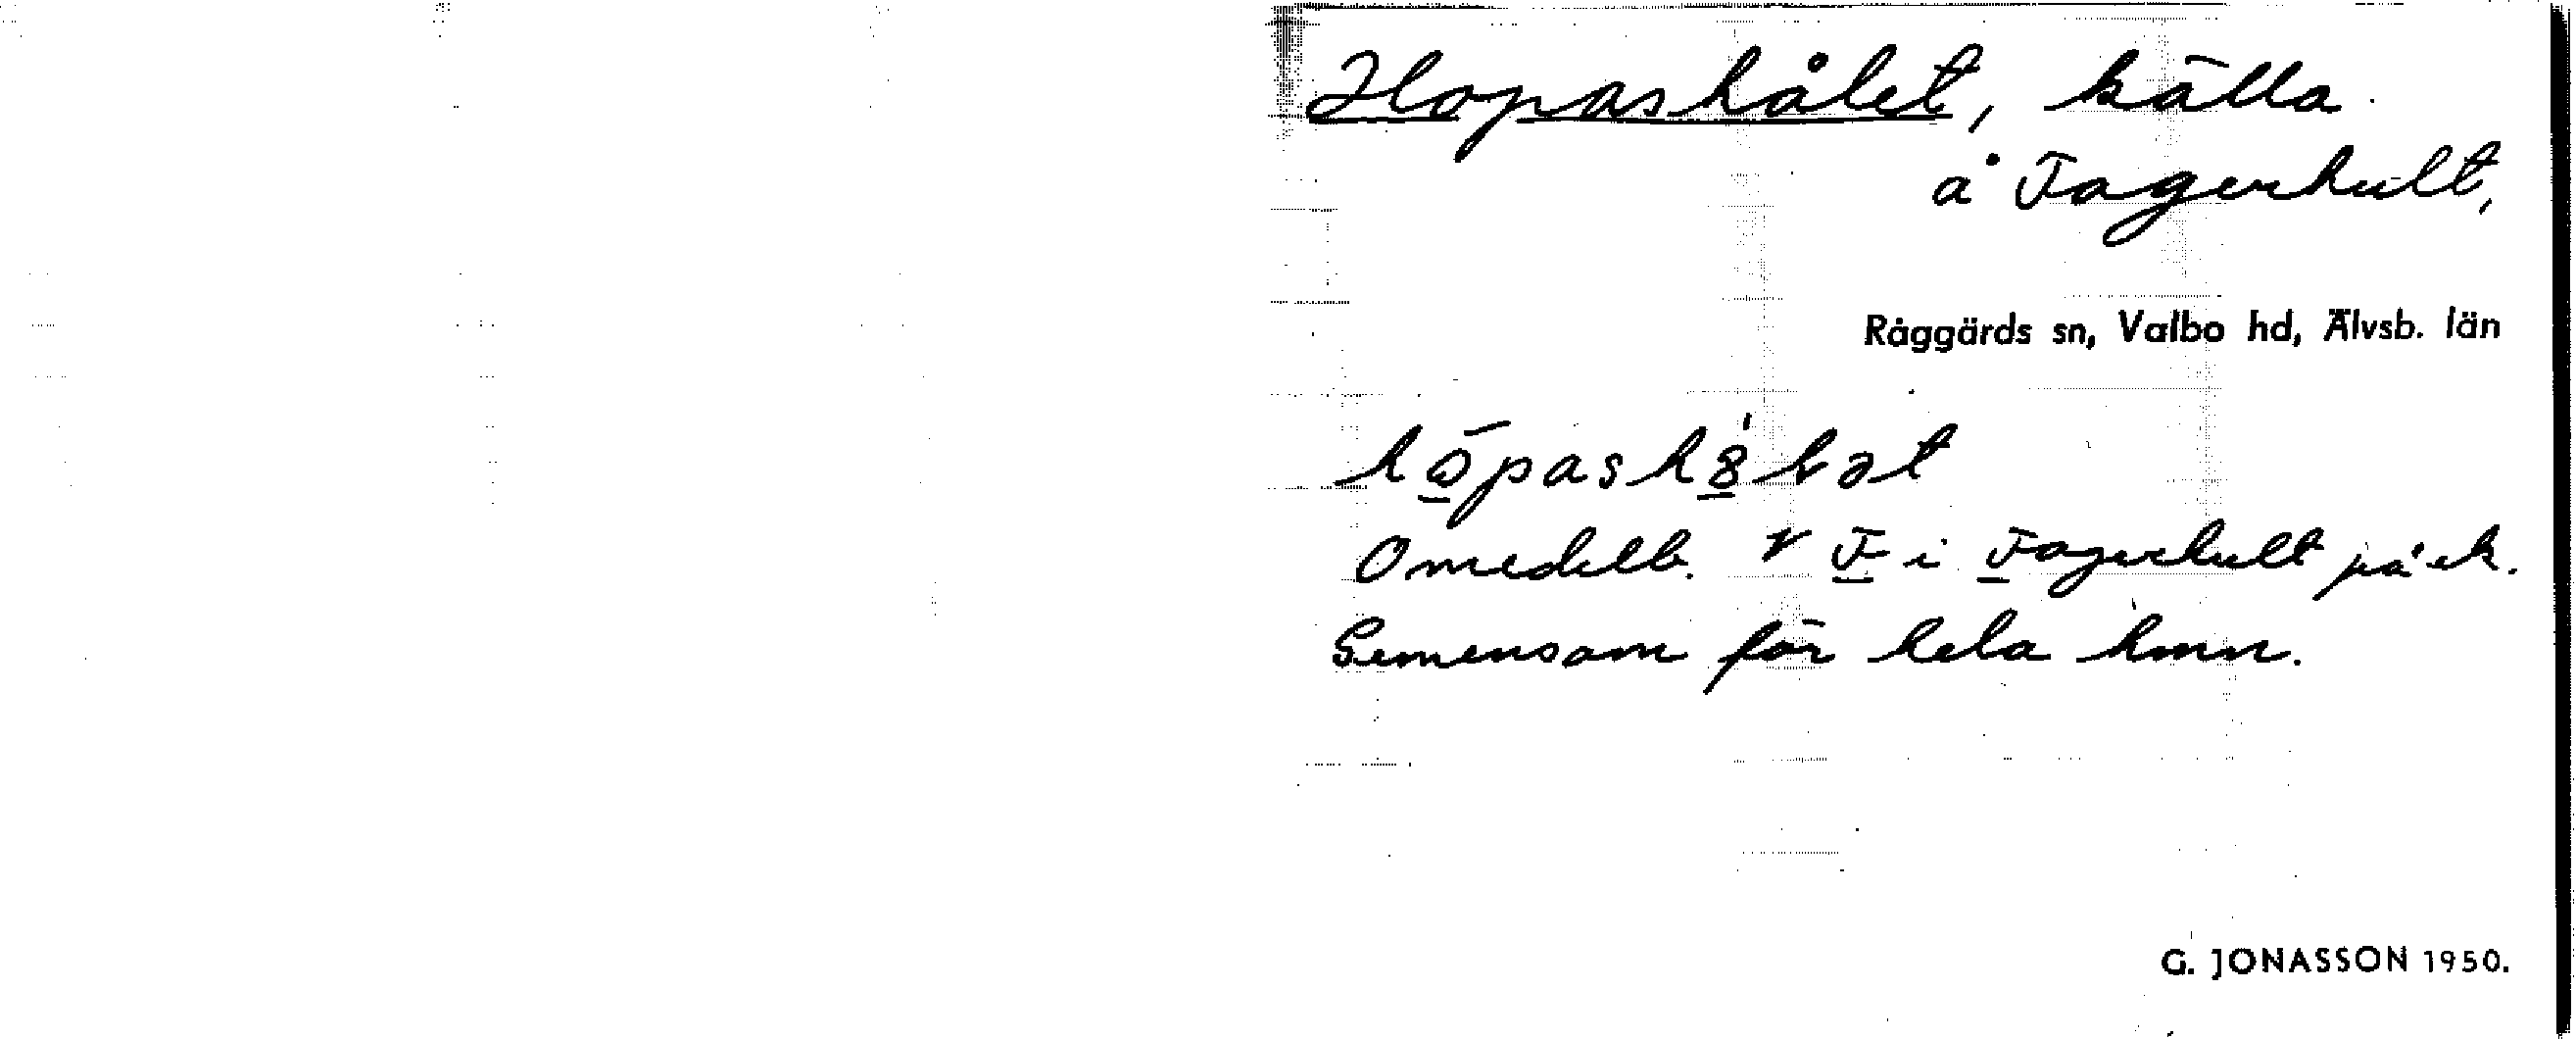 Hopashålet, källa
å Fagerhult,
Råggärds sn, Valbo hd, Älvsb. län
Omedelb. V F i Fagerhult på ek.
Gemensam för hela hmn.
G. JONASSON 1950.